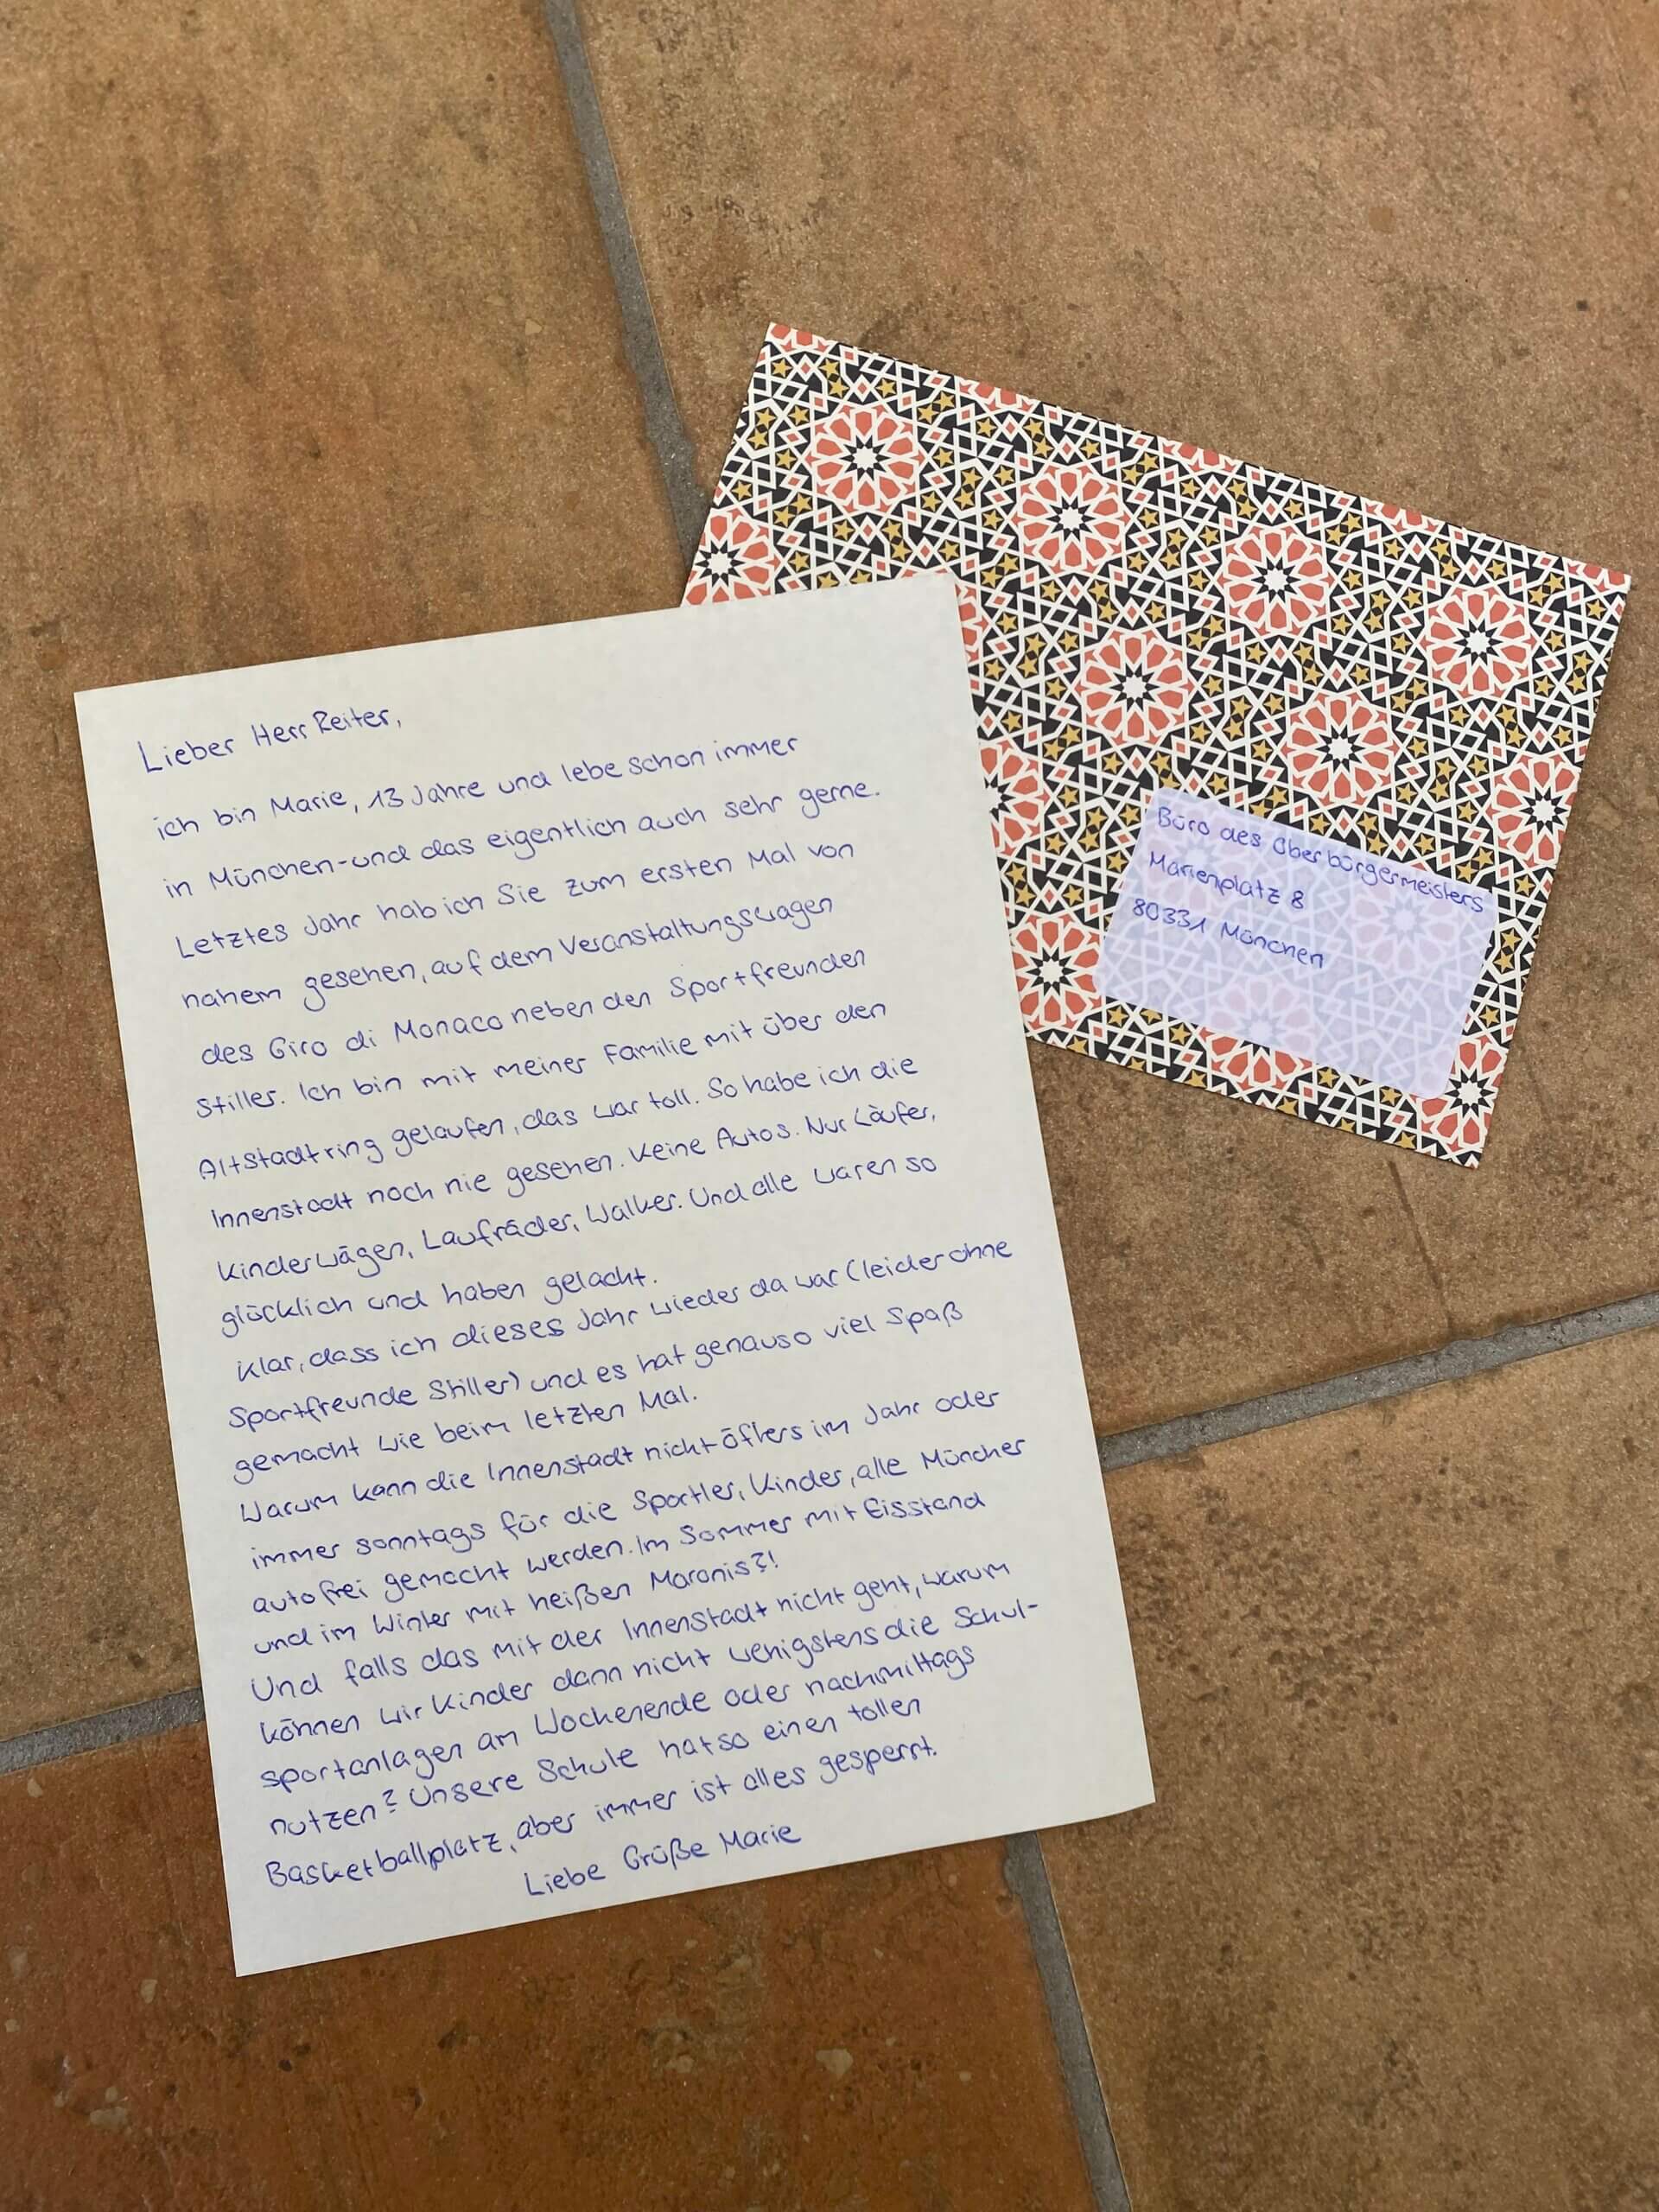 Lieber Herr Reiter,
ich bin Marie, 13 Jahre und lebe schon immer
in München-und das eigentlich auch sehr gerne.
Letztes Jahr hab ich Sie zum ersten Mal von
nahem gesehen, auf dem Veranstaltungswagen
des Giro di Monaco neben den Sportfreunden
Stiller. Ich bin mit meiner Familie mit über den
Altstadtring gelaufen, das war toll. So habe ich die
Innenstadt noch nie gesehen. Keine Autos. Nur Läufer,
Kinderwägen, Laufräder, Walker. Und alle waren so
glücklich und haben gelacht.
Klar, dass ich dieses Jahr wieder da war (leider ohne
Sportfreunde Stiller) und es hat genauso viel Spaß
gemacht wie beim letzten Mal.
Warum kann die Innenstadt nicht öfters im Jahr oder
immer sonntags für die Sportler, Kinder, alle Müncher
autofrei gemacht werden. Im Sommer mit Eisstand
und im Winter mit heißen Maronis?!
Und falls das mit der Innenstadt nicht geht, warum
können wir Kinder dann nicht wenigstens die Schul-
sportanlagen am Wochenende oder nachmittags
nutzen? Unsere Schule hat so einen tollen
Basketballplatz, aber immer ist alles gesperrt.
Liebe Grüße Marie
Büro des Oberbürgermeisters
Marienplatz 8
80331 München